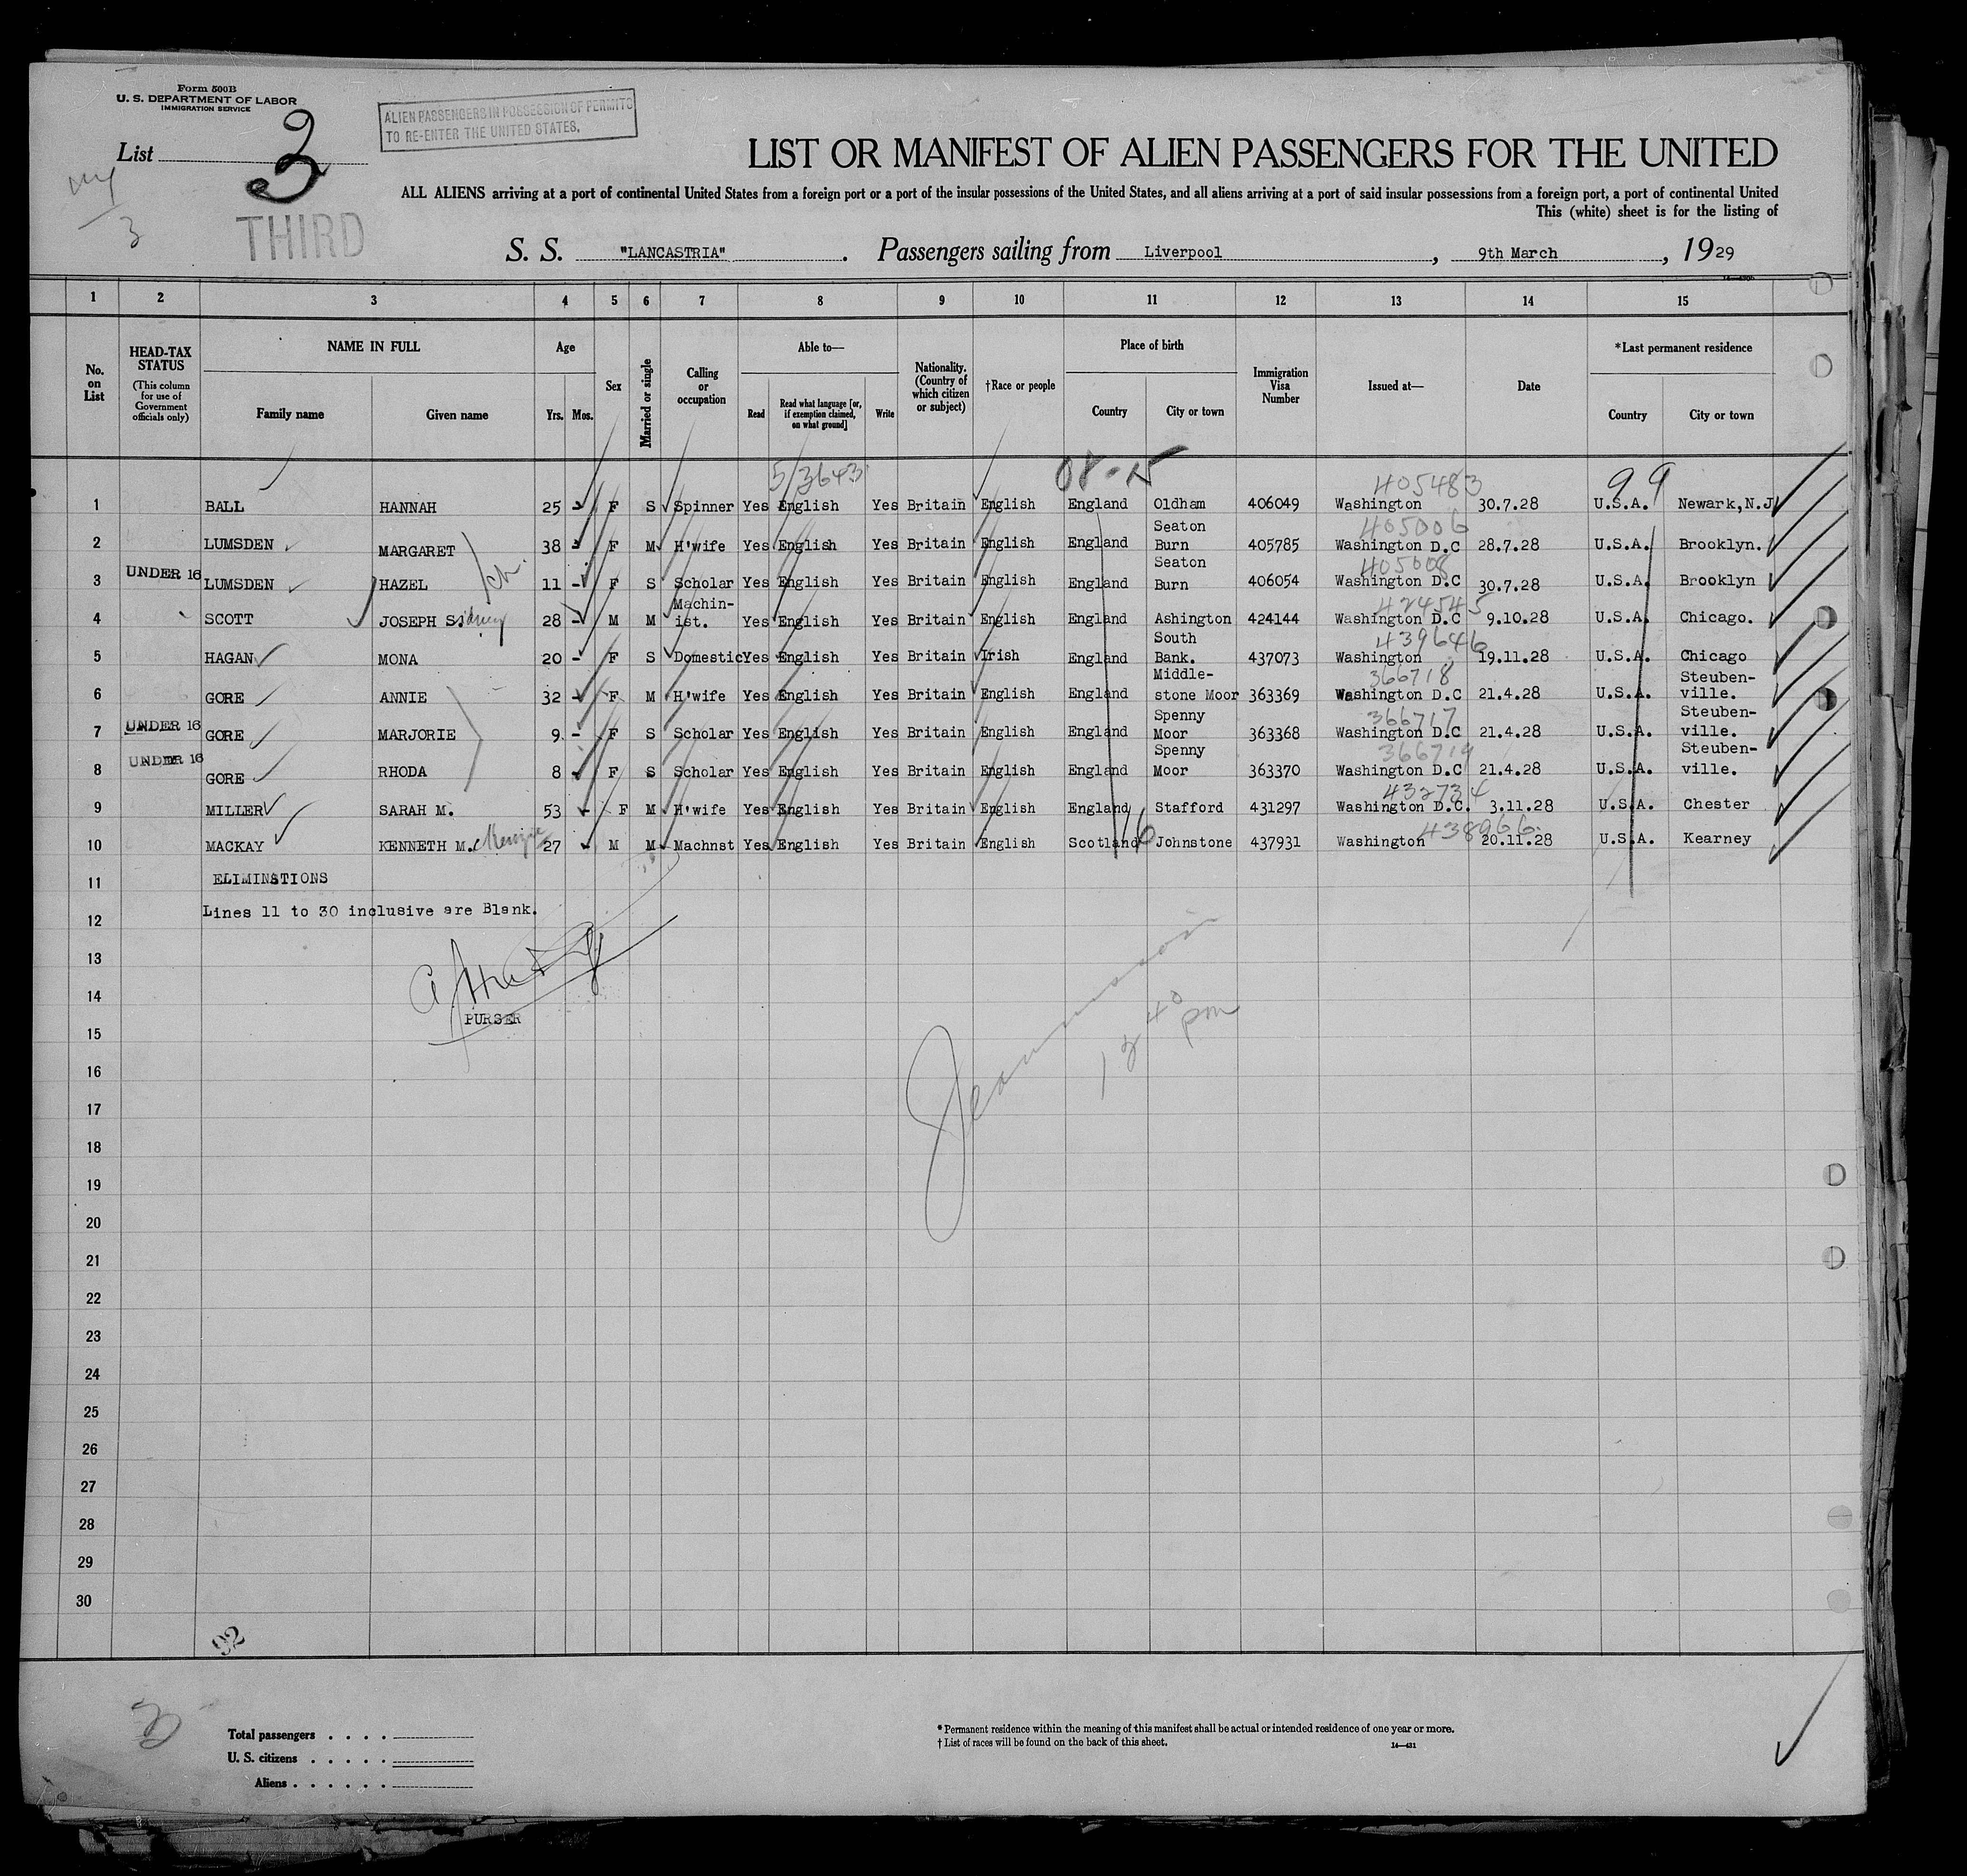 Form 500B
U. S. DEPARTMENT OF LABOR
IMMIGRATION SERVICE
ALIEN PASSENGERS IN POSSESSION OF PERMITS
TO RE-ENTER THE UNITED STATES.
List 3
3
THIRD
LIST OR MANIFEST OF ALIEN PASSENGERS FOR THE UNITED
ALL ALIENS arriving at a port of continental United States from a foreign port or a port of the insular possessions of the United States, and all aliens arriving at a port of said insular possessions from a foreign port, a port of continental United
This (white) sheet is for the listing of
S. S. "LANCASTRIA". Passengers sailing from Liverpool, 9th March, 1929
1 2 3 4 5 6 7 8 9 10 11 12 13 14 15
No. on List
HEAD-TAX STATUS
(This column for use of Government officials only)
NAME IN FULL
Family name
Given name
Age
Yrs. Mos.
Sex
Married or single
Calling or occupation
Able to—
Read
Read what language [or, if exemption claimed, on what ground]
Write
Nationality. (Country of which citizen or subject)
†Race or people
Place of birth
Country
City or town
Immigration Visa Number
Issued at—
Date
*Last permanent residence
Country
City or town
5/3643 08-15 405483 99
1 BALL HANNAH 25 - F S Spinner Yes English Yes Britain English England Oldham 406049 Washington 30.7.28 U.S.A. Newark,N.J
405006
2 LUMSDEN MARGARET 38 - F M H'wife Yes English Yes Britain English England Seaton Burn 405785 Washington D.C 28.7.28 U.S.A. Brooklyn.
405008
3 UNDER 16 LUMSDEN HAZEL 11 - F S Scholar Yes English Yes Britain English England Seaton Burn 406054 Washington D.C 30.7.28 U.S.A. Brooklyn
424545
4 SCOTT JOSEPH Sidney 28 - M M Machin-ist. Yes English Yes Britain English England Ashington 424144 Washington D.C 9.10.28 U.S.A. Chicago.
439646
5 HAGAN MONA 20 - F S Domestic Yes English Yes Britain Irish England South Bank. 437073 Washington 19.11.28 U.S.A. Chicago
366718
6 GORE ANNIE 32 - F M H'wife Yes English Yes Britain English England Middle-stone Moor 363369 Washington D.C 21.4.28 U.S.A. Steuben-ville.
366717
7 UNDER 16 GORE MARJORIE 9 - F S Scholar Yes English Yes Britain English England Spenny Moor 363368 Washington D.C 21.4.28 U.S.A. Steuben-ville.
366719
8 UNDER 16 GORE RHODA 8 F S Scholar Yes English Yes Britain English England Spenny Moor 363370 Washington D.C 21.4.28 U.S.A. Steuben-ville.
432734
9 MILLER SARAH M. 53 - F M H'wife Yes English Yes Britain English England Stafford 431297 Washington D.C. 3.11.28 U.S.A. Chester
438966
10 MACKAY KENNETH M. 27 - M M Machnst Yes English Yes Britain English Scotland 6 Johnstone 437931 Washington 20.11.28 U.S.A. Kearney
11 ELIMINATIONS
12 Lines 11 to 30 inclusive are Blank.
13
14
PURSER
12 40 pm
15
16
17
18
19
20
21
22
23
24
25
26
27
28
29
30
92
Total passengers . . . .
U. S. citizens . . . . .
Aliens . . . . . .
* Permanent residence within the meaning of this manifest shall be actual or intended residence of one year or more.
† List of races will be found on the back of this sheet.
14—431